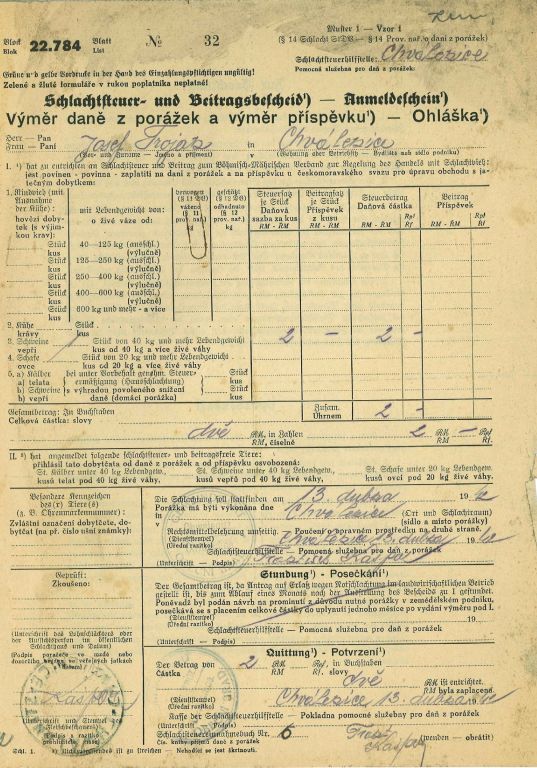 Block
Blok 22.784 Blatt
List № 32
Muster 1 — Vzor 1
(§ 14 Schlacht StDV — § 14 Prov. nař. o dani z porážek)
Schlachtsteuerhilfsstelle: Chválezice
Pomocná služebna pro daň z porážek:
Grüne und gelbe Vordrucke in der Hand des Einzahlungspflichtigen ungültig!
Zelené a žluté formuláře v rukou poplatníka neplatné!
Schlachtsteuer- und Beitragsbescheid¹) — Anmeldeschein¹)
Výměr daně z porážek a výměr příspěvku¹) — Ohláška¹)
Herr — Pan
Frau — Paní Josef in — v Chválezice
(Vor- und Zuname — Jméno a příjmení) (Wohnung oder Betriebssitz — Bydliště neb sídlo podniku)
I. ¹) hat zu entrichten an Schlachtsteuer und Beitrag zum Böhmisch-Mährischen Verband zur Regelung des Handels mit Schlachtvieh:
jest povinen - povinna - zaplatiti na dani z porážek a na příspěvku u českomoravského svazu pro úpravu obchodu s jatečným dobytkem:
1. Rindvieh (mit Ausnahme der Kühe):
hovězí dobytek (s výjimkou krav):
mit Lebendgewicht von:
o živé váze od:
gewogen (§ 11 prov. nař.)
váženo
geschätzt (§ 12 prov. nař.)
odhadnuto
Steuersatz je Stück
Daňová sazba za kus
RM - RM
Beitragssatz je Stück
Příspěvek z kusu
RM - RM
Steuerbetrag
Daňová částka
RM - RM Rpf Rf
Beitrag
Příspěvek
RM - RM Rpf Rf
Stück kus 40—125 kg (ausschl.) (výlučně)
Stück kus 125—250 kg (ausschl.) (výlučně)
Stück kus 250—400 kg (ausschl.) (výlučně)
Stück kus 400—600 kg (ausschl.) (výlučně)
Stück kus 600 kg und mehr - a více
2. Kühe Stück
krávy kus
3. Schweine 1 Stück von 40 kg und mehr Lebendgewicht 2 — 2 —
vepři kus od 40 kg a více živé váhy
4. Schafe Stück von 20 kg und mehr Lebendgewicht
ovce kus od 20 kg a více živé váhy
5. a) Kälber bei unter Vorbehalt genehm. Steuer-
a) telata ermäßigung (Hausschlachtung)
b) Schweine s výhradou povoleného snížení
b) vepři daně (domácí porážka)
Gesamtbetrag: In Buchstaben Zusam. Úhrnem 2 —
Celková částka: slovy dvě RM, in Zahlen
RM, číselně 2 RM — Rpf
RM Rf.
II. ²) hat angemeldet folgende schlachtsteuer- und beitragsfreie Tiere:
přihlásil tato dobytčata od daně z porážek a od příspěvku osvobozená:
St. Kälber unter 40 kg Lebendgew., St. Schweine unter 40 kg Lebendgew., St. Schafe unter 20 kg Lebendgew.
kusů telat pod 40 kg živé váhy, kusů vepřů pod 40 kg živé váhy, kusů ovcí pod 20 kg živé váhy.
Besondere Kennzeichen des(r) Tiere(s)
(z. B. Ohrenmarkennummer):
Zvláštní označení dobytčete, dobytčat (na př. číslo ušní známky):
Die Schlachtung soll stattfinden am 13. dubna 1942
Porážka má býti vykonána dne
in — v Chválezice (Ort und Schlachtraum)
(sídlo a místo porážky)
Rechtsmittelbelehrung umseitig. — Poučení o opravném prostředku na druhé straně.
Chválezice 13. dubna 1942
(Dienststempel)
(Úřední razítko)
Schlachtsteuerhilfsstelle — Pomocná služebna pro daň z porážek
(Unterschrift - Podpis) Kašpar
Stundung¹) - Posečkání¹)
Der Gesamtbetrag ist, da Antrag auf Erlaß wegen Notschlachtung im landwirtschaftlichen Betrieb gestellt ist, bis zum Ablauf eines Monats nach der Ausstellung des Bescheids zu I gestundet.
Poněvadž byl podán návrh na prominutí z důvodu nutné porážky v zemědělském podniku, posečkává se s placením celkové částky do uplynutí jednoho měsíce po vydání výměru pod I.
(Dienststempel)
(Úřední razítko) 19
Schlachtsteuerhilfsstelle — Pomocná služebna pro daň z porážek
(Unterschrift - Podpis)
Geprüft:
Zkoušeno:
(Unterschrift des Hallenmeisters oder der Aufsichtsperson im öffentlichen Schlachthaus und Datum)
(Podpis porážeče ve mase nebo dozorčího orgánu ve veřejných jatkách a datum)
Kašpar
(Unterschrift und Stempel des Fleischbeschauers)
(Podpis a razítko prohlížitele masa)
Quittung¹) - Potvrzení¹)
Der Betrag von 2 RM Rpf, in Buchstaben
Částka RM Rf, slovy dvě RM ist entrichtet.
RM byla zaplacena.
(Dienststempel)
(Úřední razítko) Chválezice 13. dubna 1942
Kasse der Schlachtsteuerhilfsstelle — Pokladna pomocné služebny pro daň z porážek
Nr. des Schlachtsteuer-Einnahmebuchs
Čís. knihy příjmů daně z porážek 6 Kašpar (wenden — obrátit)
Schl. 1. ¹) Nichtzutreffendes ist zu streichen — Nehodící se jest škrtnouti.